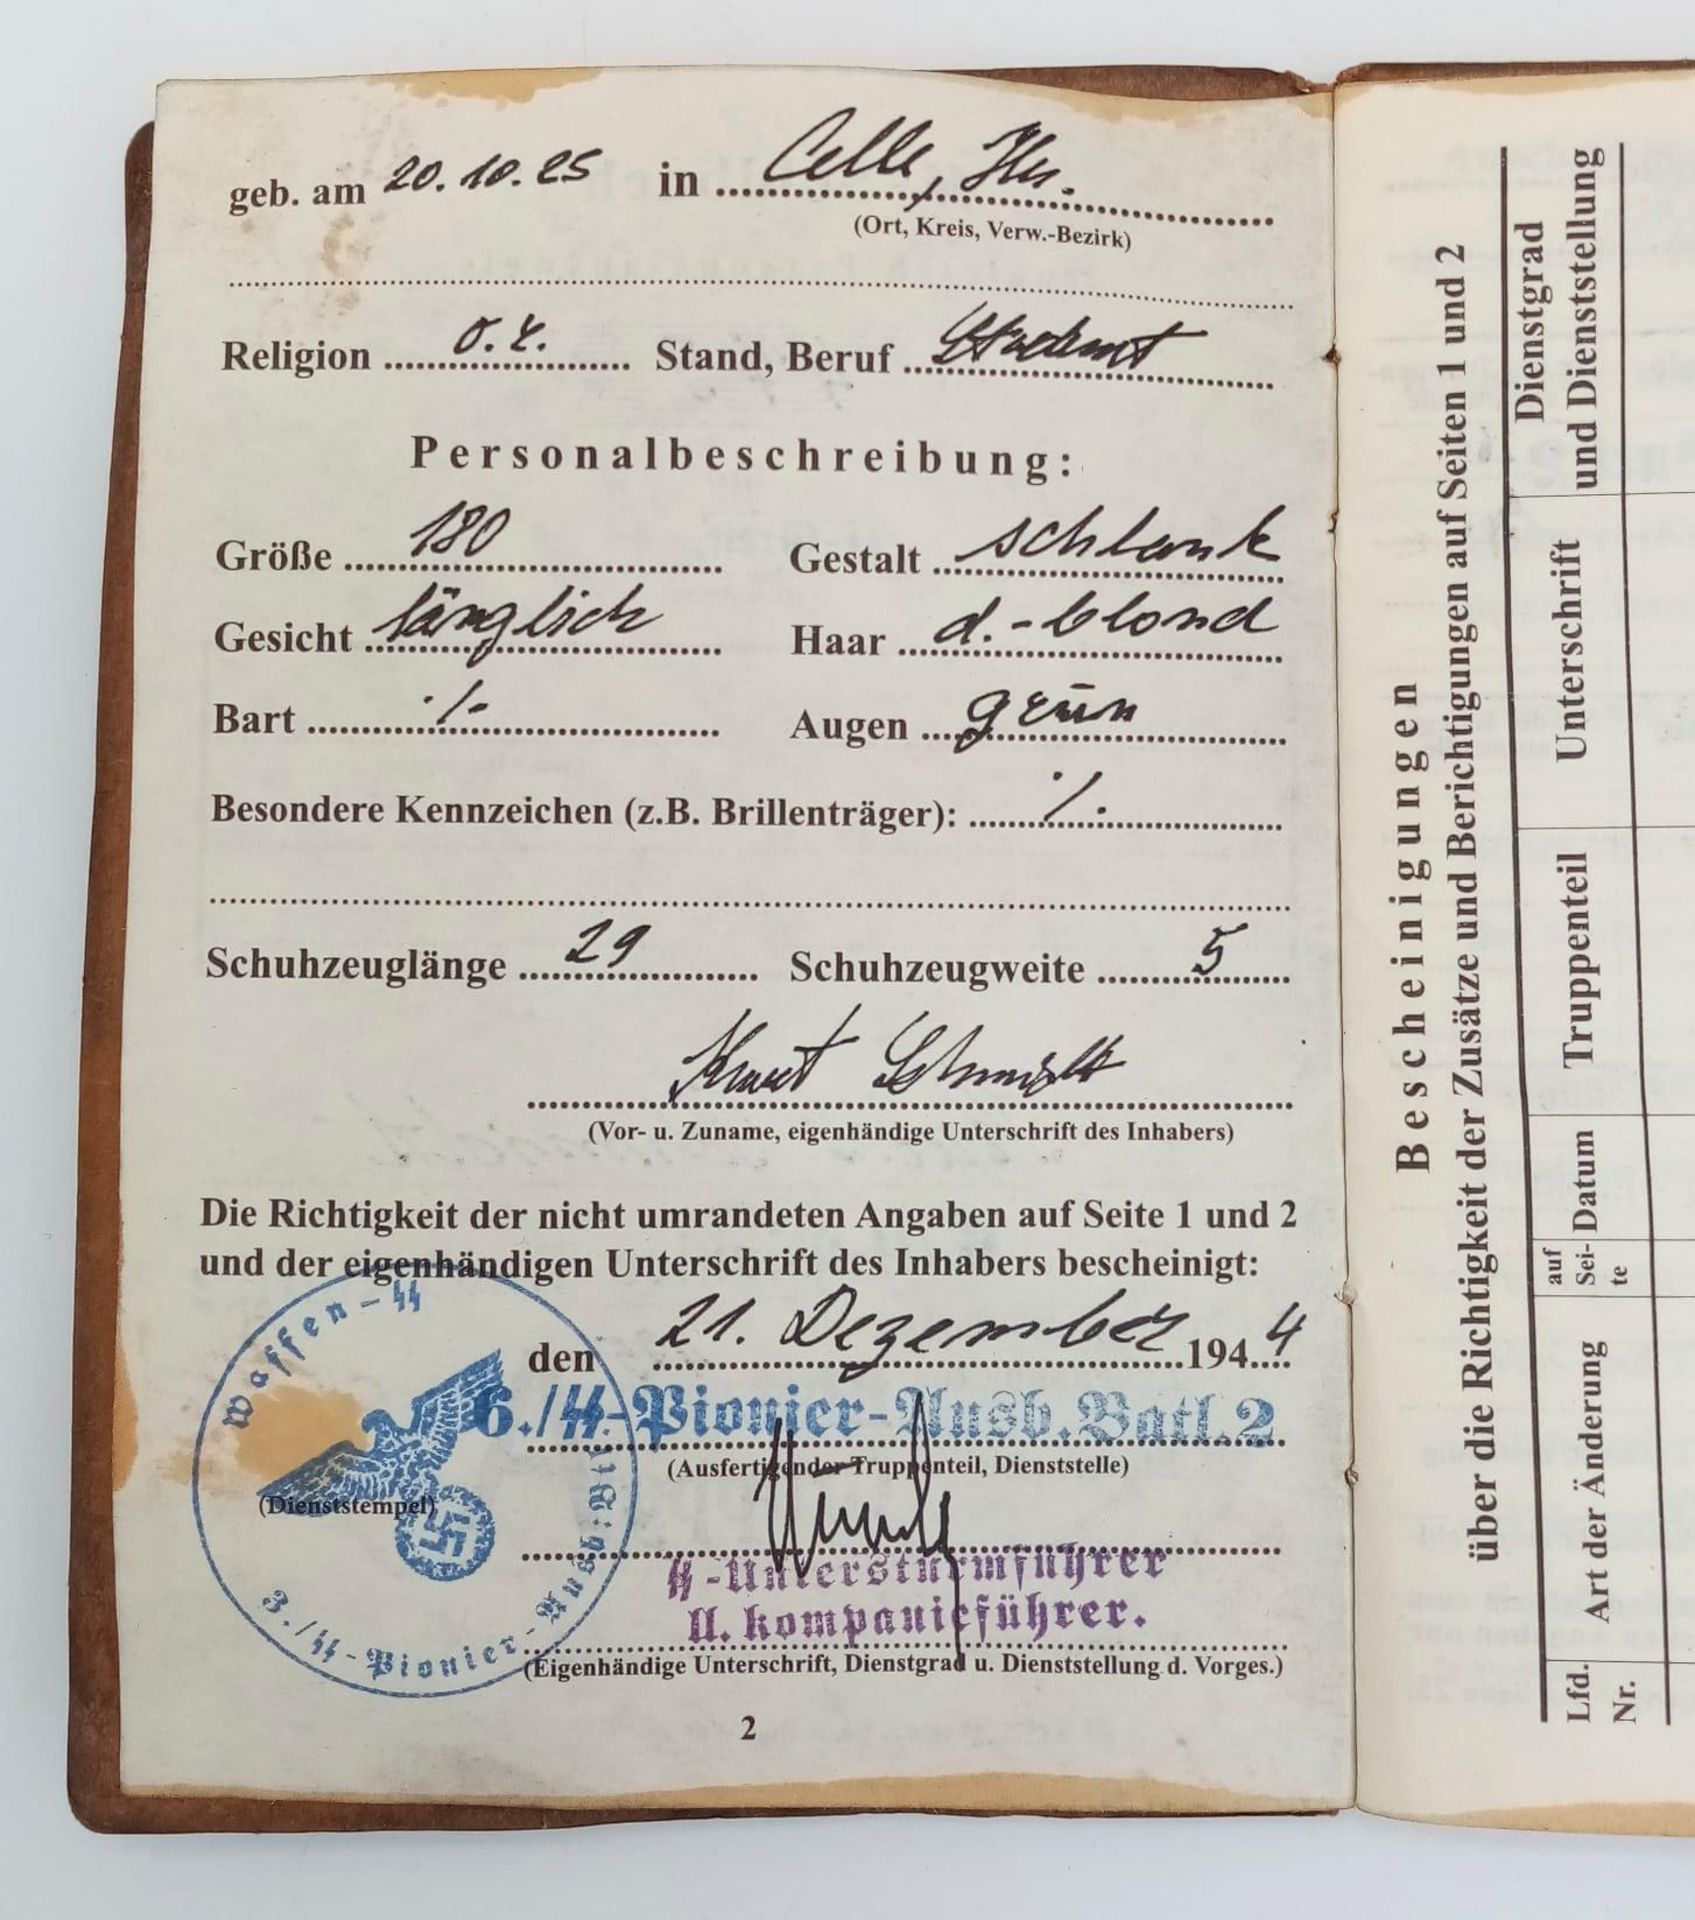 geb. am 20. 10. 25 in Celle, Hn.
(Ort, Kreis, Verw.-Bezirk)
Religion Stand, Beruf Student
Personalbeschreibung:
Größe 180 Gestalt schlank
Gesicht länglich Haar d.-blond
Bart ./. Augen grün
Besondere Kennzeichen (z.B. Brillenträger): ./.
Schuhzeuglänge 29 Schuhzeugweite 5
Kurt Schmidt
(Vor- u. Zuname, eigenhändige Unterschrift des Inhabers)
Die Richtigkeit der nicht umrandeten Angaben auf Seite 1 und 2
und der eigenhändigen Unterschrift des Inhabers bescheinigt:
den 21. Dezember 1944
6./SS-Pionier-Ausb.Batl.2
(Ausfertigender Truppenteil, Dienststelle)
Waffen-SS
(Dienststempel)
3./SS-Pionier-Ausb.Btl.
SS-Untersturmführer
U. Kompanieführer.
(Eigenhändige Unterschrift, Dienstgrad u. Dienststellung d. Vorges.)
2
Bescheinigungen
über die Richtigkeit der Zusätze und Berichtigungen auf Seiten 1 und 2
Lfd. Nr.
Art der Änderung
auf Sei- te
Datum
Truppenteil
Unterschrift
Dienstgrad
und Dienststellung